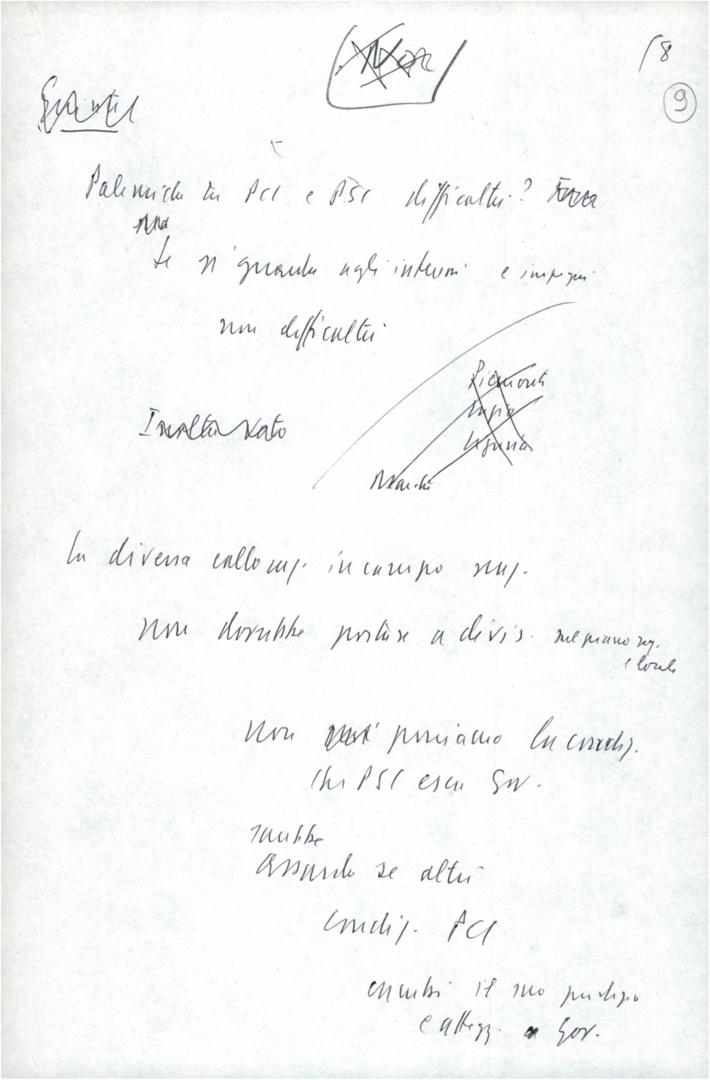 18
9
Polemiche tra PCI e PSI difficoltà?
ma
Se si guarda agli interessi e impegni
non difficoltà
Piemonte
Liguria
Marche
La diversa colloc. in campo naz.
non dovrebbe portare a divis. sul piano reg.
e locale
Non poniamo la condiz.
che PSI esca Gov.
sarebbe
Assurdo se altri
condiz. PCI
cambi il suo
e attegg. a Gov.